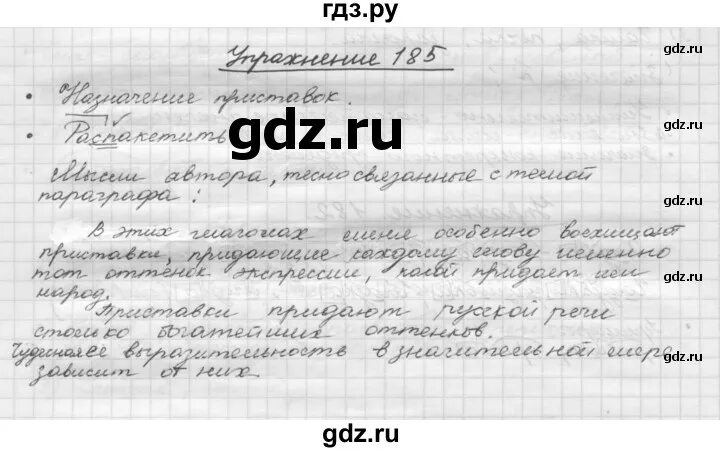 гдз.ру
Упражнение 185
• Назначение приставок.
• Распакетить
Мысли автора, тесно связанные с темой
параграфа:
В этих глаголах меня особенно восхищают
приставки, придающие каждому слову именно
тот оттенок экспрессии, какой придает им
народ.
Приставки придают русской речи
столько богатейших оттенков.
Чудесная её выразительность в значительной мере
зависит от них
gdz.ru
gdz.ru
gdz.ru
gdz.ru